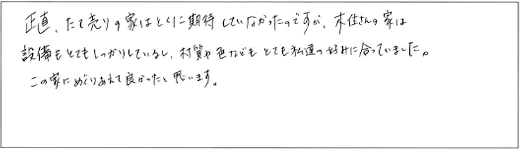 正直、たて売りの家はとくに期待していなかったのですが、木住さんの家は
設備もとてもしっかりしているし、材質や色などもとても私達の好みに合っていました。
この家にめぐりあえて良かったと思います。